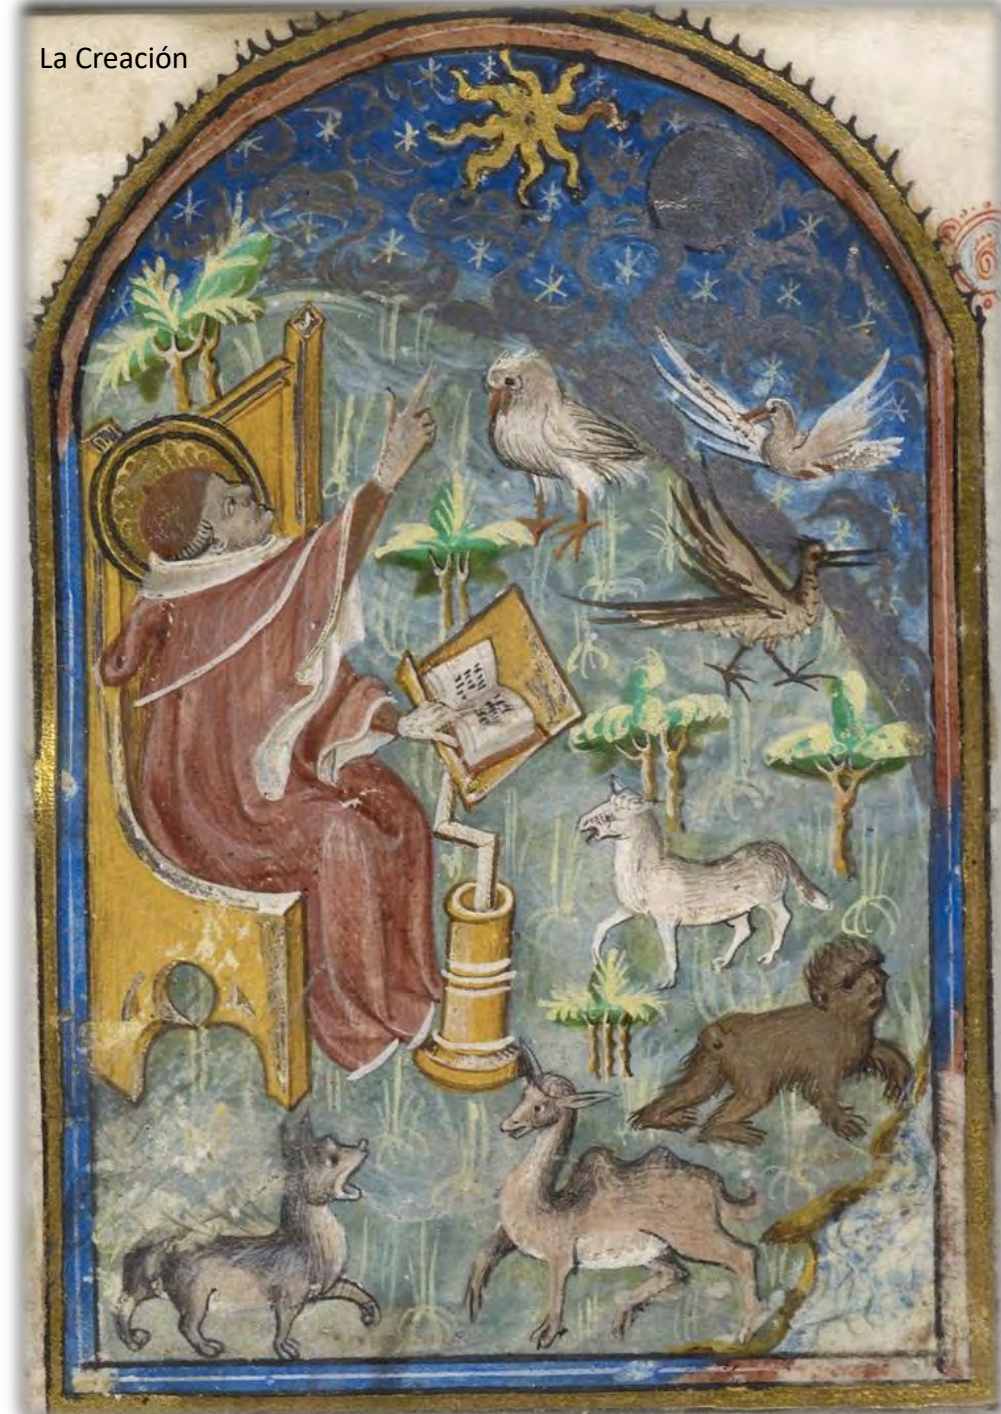 La Creación